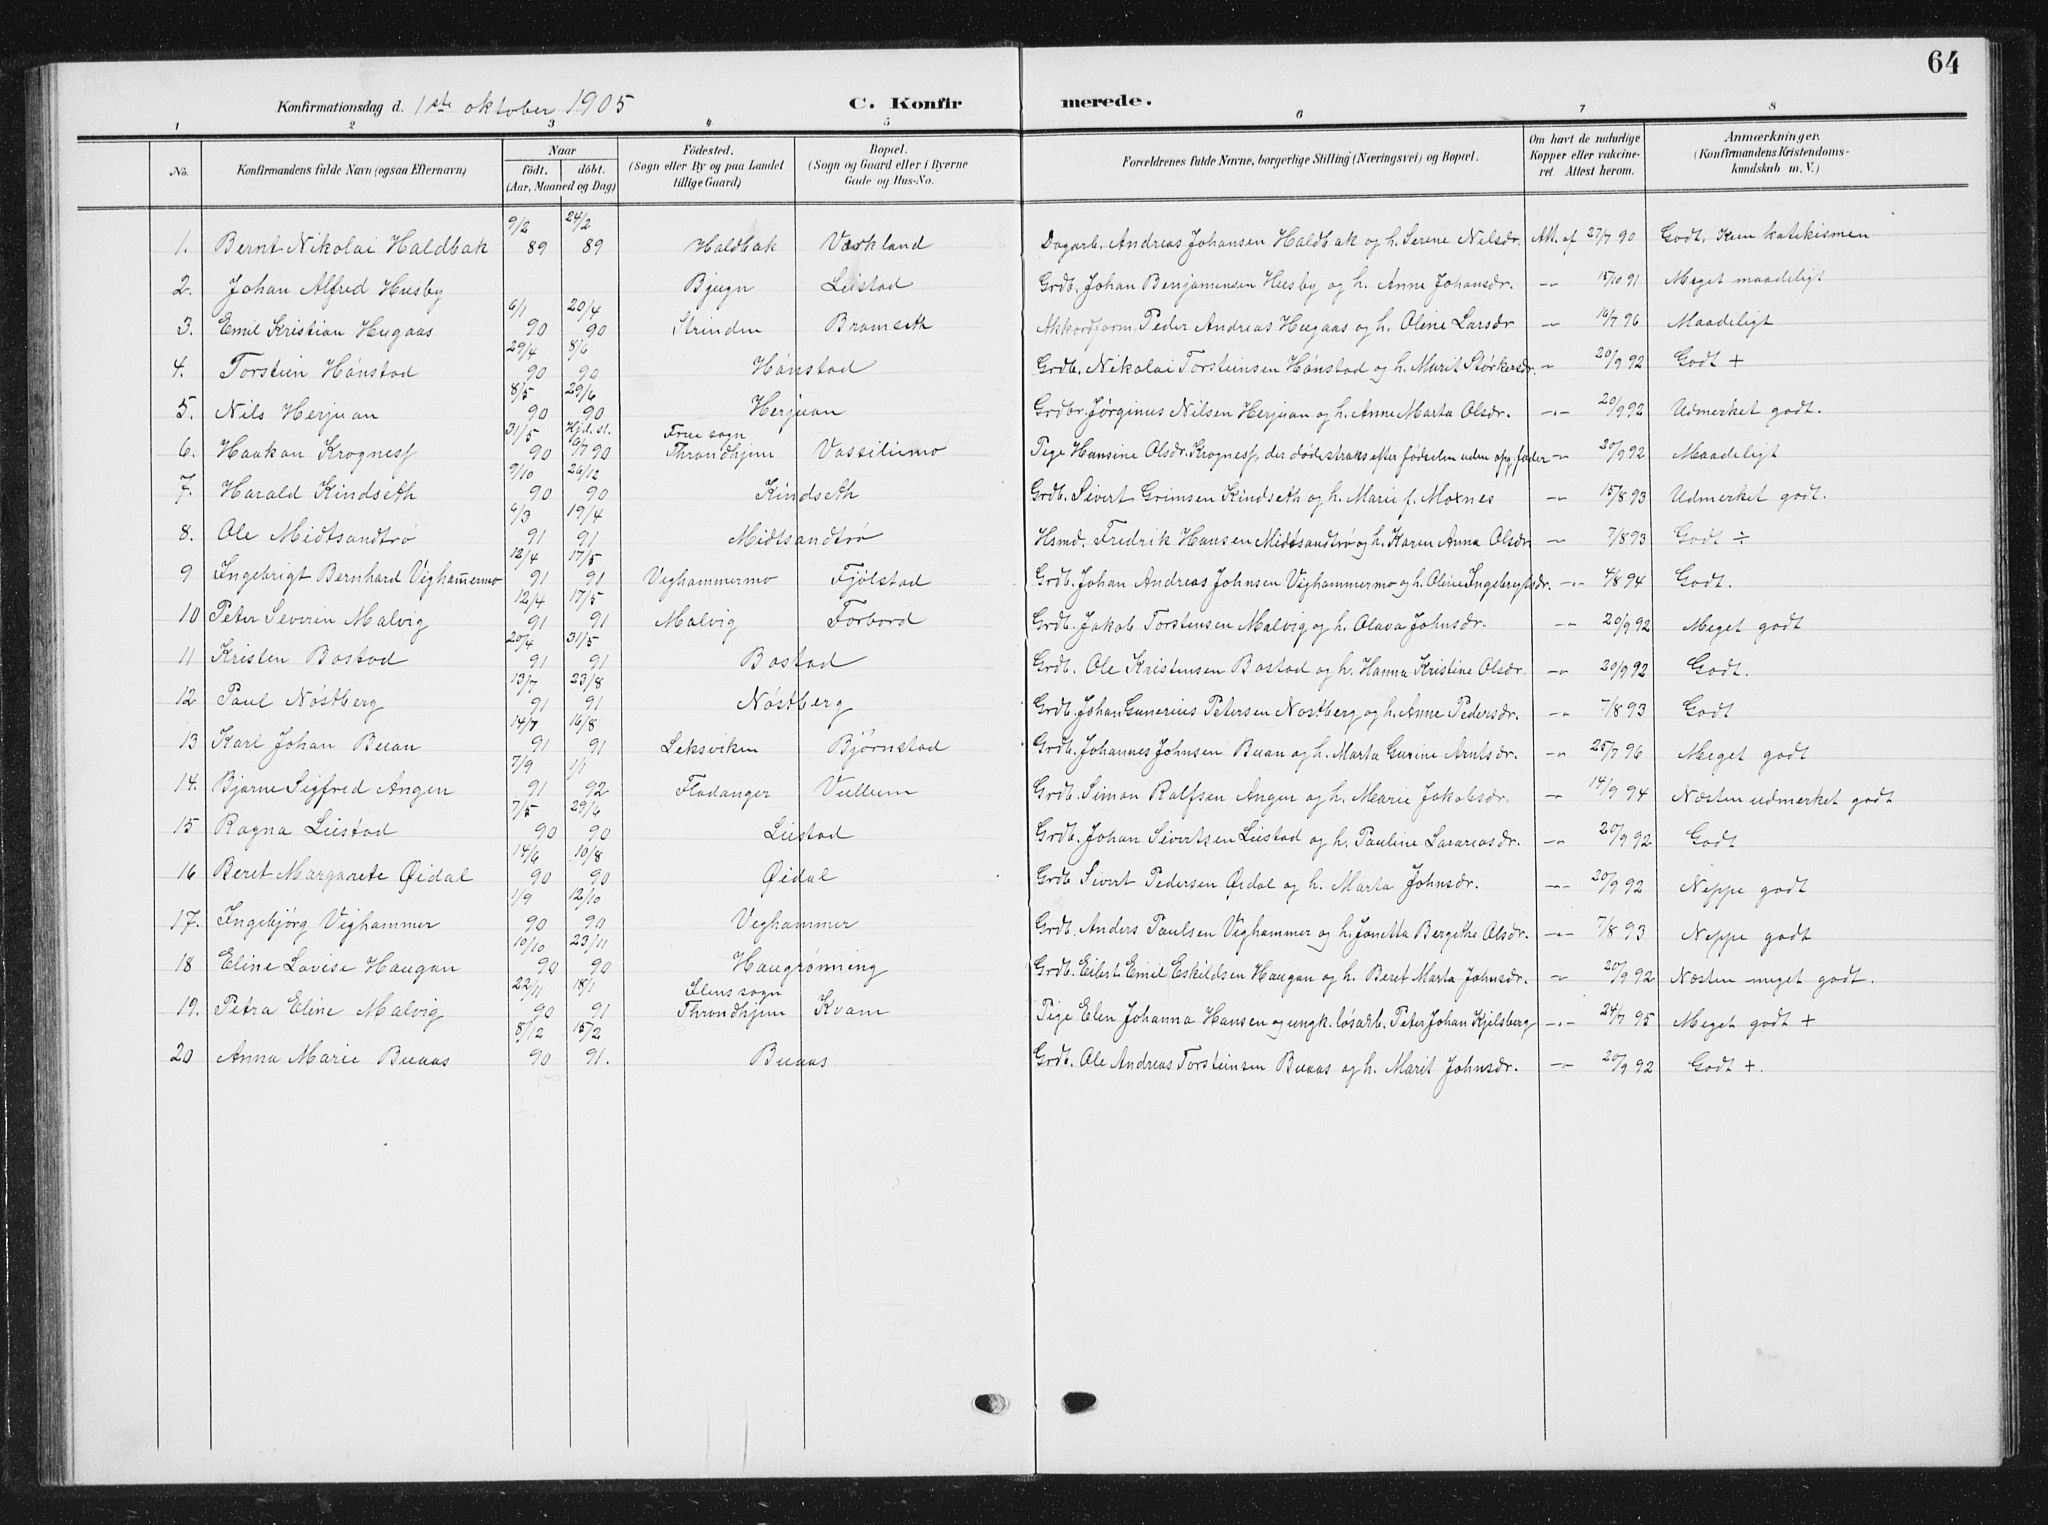 64
Konfirmationsdag d. 1ste oktober 1905 C. Konfirmerede.
1 2 3 4 5 6 7 8
No. Konfirmandens fulde Navn (ogsaa Efternavn) Naar født. døbt. (Aar, Maaned og Dag) Fødested. (Sogn eller By og paa Landet tillige Gaard) Bopæl. (Sogn og Gaard eller i Byerne Gade og Hus-No. Forældrenes fulde Navne, borgerlige Stilling (Næringsvei) og Bopæl. Om havt de naturlige Kopper eller vakcineret. Attest herom. Anmærkninger. (Konfirmandens Kristendomskundskab m. V.)
1. Bernt Nikolai Haldbak 9/2 89 24/2 89 Haldbak Vaskland Dagarb. Andreas Johansen Haldbak og h. Serene Nilsdr. Att. af 27/7 90 Godt. Kun katikismen
2. Johan Alfred Husby Bjugn Leistad Grdb. Johan Benjamensen Husby og h. Anne Johansdr. -"- 15/10 91 Meget maadeligt
3. Emil Kristian Hugaas 6/1 90 20/4 90 Strinden Bromseth Akkordform. Peder Andreas Hugaas og h. Oline Larsdr -"- 16/7 96 Maadeligt
4. Torstein Hönstad 29/4 90 8/6 90 Hönstad Grdb. Nikolai Torsteinsen Hönstad og h. Marit Størkersdr. -"- 20/9 92 Godt +
5. Nils Herjuan 8/5 90 29/6 90 Herjuan Grdbr. Jørginus Nilsen Herjuan og h. Anne Marta Olsdr. -"- 20/9 92 Udmerket godt.
6. Haakon Krogness 31/5 90 Hjd. st. 6/7 90 Frue sogn Throndhjem Vassiliemo Pige Hansine Olsdr. Krogness, der døde straks efter fødselen uden opg. fader -"- 20/9 92 Maadeligt
7. Harald Kindseth 9/10 90 26/12 90 Kindseth Grdb. Sivert Grimsen Kindseth og h. Marie f. Moxnes -"- 15/8 93 Udmerket godt.
8. Ole Midtsandtrø 6/3 91 19/4 91 Midtsandtrø Hsmd. Fredrik Hansen Midtsandtrø og h. Karen Anna Olsdr -"- 7/8 93 Godt ÷
9 Ingebrigt Bernhard Vighammermo 12/4 91 17/5 91 Vighammermo Fjölstad Grdb. Johan Andreas Johnsen Vighammermo og h. Oline Ingebrigtsdr. -"- 4/8 94 Godt.
10 Peter Severin Malvig 12/4 91 17/5 91 Malvig Forbord Grdb. Jakob Torstensen Malvig og h. Olava Johnsdr. -"- 20/9 92 Meget godt
11 Kristen Bostad 20/4 91 31/5 91 Bostad Grdb. Ole Kristensen Bostad og h. Hanna Kristine Olsdr -"- 20/9 92 Godt.
12 Paul Nöstberg 13/7 91 23/8 91 Nöstberg Grdb. Johan Gunerius Petersen Nostberg og h. Anne Pedersdr. -"- 7/8 93 Godt
13 Karl Johan Buan 14/7 91 16/8 91 Leksviken Björnstad Grdb. Johannes Johnsen Buan og h. Marta Gurine Arntsdr. -"- 25/7 96 Meget godt
14. Bjarne Sigfred Angen 7/9 91 1/1 92 Fladanger Vullum Grdb. Simon Rolfsen Angen og h. Marie Jakobsdr. -"- 14/9 94 Næsten udmerket godt
15 Ragna Leistad 7/5 90 29/6 90 Leistad Grdb. Johan Sivertsen Leistad og h. Pauline Larariasdr. -"- 20/9 92 Godt
16 Beret Margarete Øidal 14/6 90 10/8 90 Øidal Grdb Sivert Pedersen Øidal og h. Marta Johnsdr. -"- 20/9 92 Neppe godt
17. Ingebjörg Vighammer 1/9 90 12/10 90 Vighammer Grdb. Anders Paulsen Vighammer og h. Jonetta Bergithe Olsdr. -"- 7/8 93 Neppe godt
18 Eline Lovise Haugan 10/10 90 23/11 90 Haugrønning Grdb. Eilert Emil Eskildsen Haugan og h. Beret Marta Johnsdr. -"- 20/9 92 Næsten meget godt.
19. Petra Eline Malvig 22/11 90 18/1 91 Ilens sogn Throndhjem Kvam Pige Elen Johanna Hansen og ungk. lösarb. Peter Johan Kjelsberg -"- 24/7 95 Meget godt +
20 Anna Marie Buaas 8/12 90 15/2 91. Buaas Grdb. Ole Andreas Torsteinsen Buaas og h. Marit Johnsdr. -"- 20/9 92 Godt +.